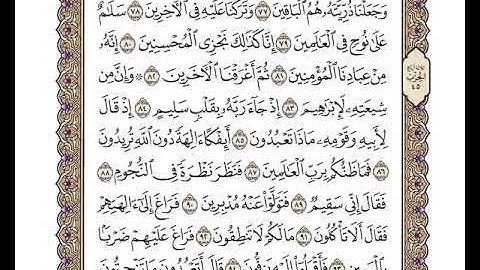 وَجَعَلْنَا ذُرِّيَّتَهُۥ هُمُ ٱلْبَاقِينَ ٧٧ وَتَرَكْنَا عَلَيْهِ فِى ٱلْءَاخِرِينَ ٧٨ سَلَٰمٌ
عَلَىٰ نُوحٍ فِى ٱلْعَٰلَمِينَ ٧٩ إِنَّا كَذَٰلِكَ نَجْزِى ٱلْمُحْسِنِينَ ٨٠ إِنَّهُۥ
مِنْ عِبَادِنَا ٱلْمُؤْمِنِينَ ٨١ ثُمَّ أَغْرَقْنَا ٱلْءَاخَرِينَ ٨٢ ۞ وَإِنَّ مِن
شِيعَتِهِۦ لَإِبْرَٰهِيمَ ٨٣ إِذْ جَآءَ رَبَّهُۥ بِقَلْبٍ سَلِيمٍ ٨٤ إِذْ قَالَ
لِأَبِيهِ وَقَوْمِهِۦ مَاذَا تَعْبُدُونَ ٨٥ أَئِفْكًا ءَالِهَةً دُونَ ٱللَّهِ تُرِيدُونَ
٨٦ فَمَا ظَنُّكُم بِرَبِّ ٱلْعَٰلَمِينَ ٨٧ فَنَظَرَ نَظْرَةً فِى ٱلنُّجُومِ ٨٨
فَقَالَ إِنِّى سَقِيمٌ ٨٩ فَتَوَلَّوْا۟ عَنْهُ مُدْبِرِينَ ٩٠ فَرَاغَ إِلَىٰٓ ءَالِهَتِهِمْ
فَقَالَ أَلَا تَأْكُلُونَ ٩١ مَا لَكُمْ لَا تَنطِقُونَ ٩٢ فَرَاغَ عَلَيْهِمْ ضَرْبًۢا
بِٱلْيَمِينِ ٩٣ فَأَقْبَلُوٓا۟ إِلَيْهِ يَزِفُّونَ ٩٤ قَالَ أَتَعْبُدُونَ مَا تَنْحِتُونَ
الحزب
٤٥